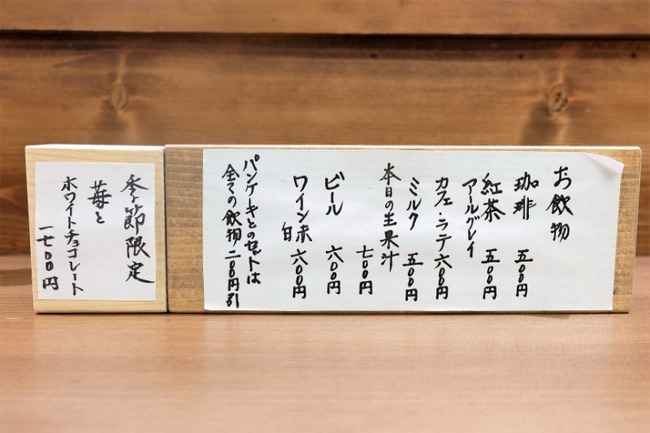 お飲物
珈琲 五〇〇円
紅茶 五〇〇円
アールグレイ
カフェ・ラテ 六〇〇円
ミルク 五〇〇円
本日の生果汁
七〇〇円
ビール 六〇〇円
ワイン 赤 白 六〇〇円
パンケーキとのセットは
全ての飲物 二〇〇円引
季節限定
苺と
ホワイトチョコレート
一七〇〇円